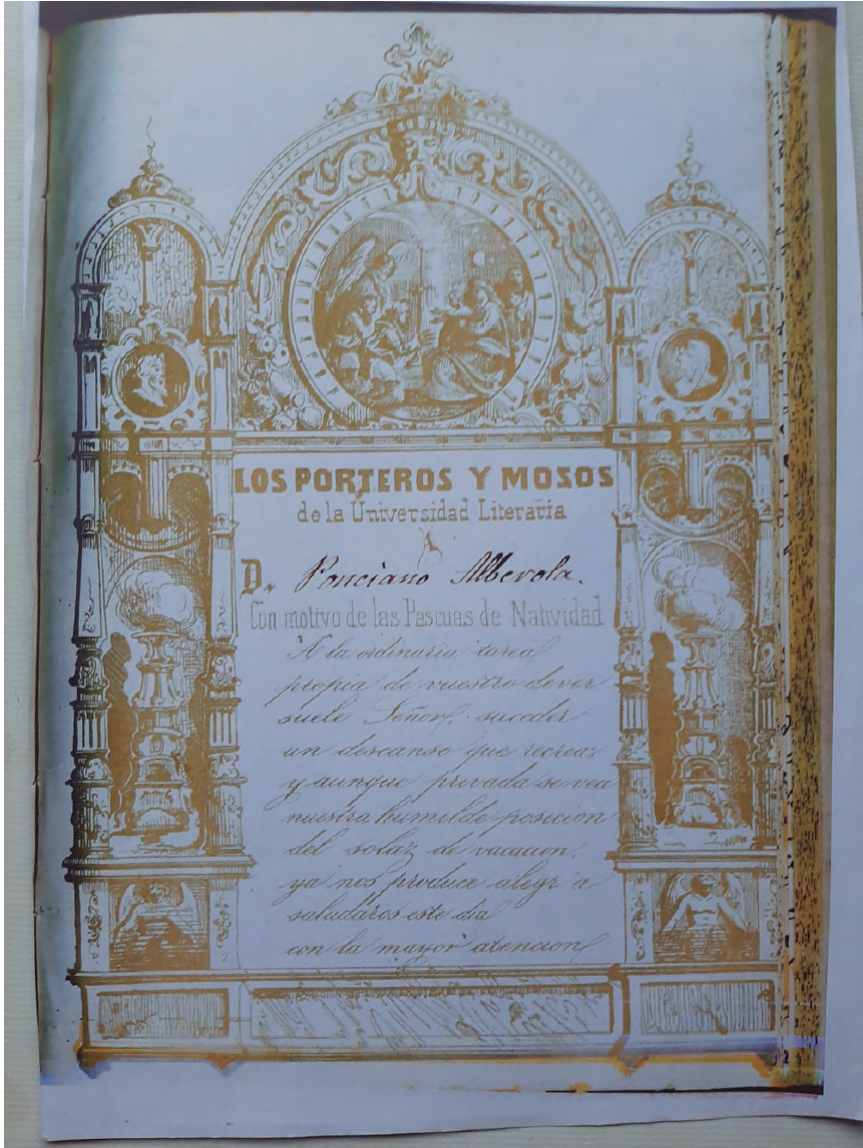 LOS PORTEROS Y MOSOS
de la Universidad Literaria
A
D. Ponciano Alberola.
Con motivo de las Pascuas de Natividad
A la ordinaria tarea
propia de vuestro dever
suele Señor, suceder
un descanso que recrea:
y aunque privada se vea
nuestra humilde posicion
del solaz de vacacion,
ya nos produce alegria
saludaros este dia
con la mayor atencion